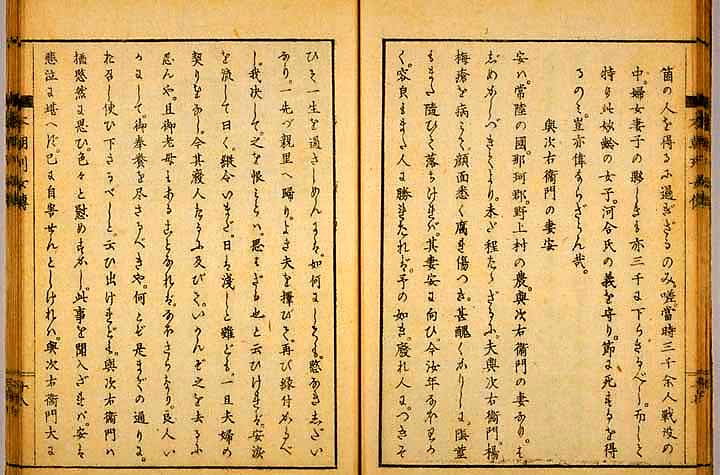 箇の人を得るに過ぎざるのみ。嗟。當時三千余人戰没の
中。婦女妻子の夥しきも亦三千に下らざるべし。而して
特り此妙齡の女子。河合氏の義を守り。節に死するを得
るのミ。豈亦偉ならざらん哉。
與次右衛門の妻安
安ハ。常陸の國。那珂郡。野上村の農。與次右衛門の妻なり。
しめかしづきしより。未だ程たゝざるに。夫與次右衛門。楊
梅瘡を病て。顔面悉く腐れ傷つき。甚醜くかりし。
もまた随ひて落ちければ。其妻安に向ひ。今汝年なほわかく。
容良もまた人に勝れたれば。予の如き。廢れ人につきそ
ひて。一生を過さしめんは。如何にしても。愍なきしだい
なり。一先づ親里へ歸り。よき夫を擇びて。再び縁付かるべ
し。我决して。之を恨とハ。思ハざる也と云ひければ。安涙
を流して曰く。縱令いまだ。日は淺しと雖ども。一旦夫婦の
契りをなし。今其廢人なるに及びて。いかんぞ之を去るに
忍んや。且御老母もあることなれば。なほさらなり。良人い
かにして。御奉養を尽さるべきや。何とぞ是まどの通りに。
召し使ひ下さるべしと。云ひ出けれども。與次右衛門ハ
猶愍然に思ひ。色々と慰めすかし。此事を聞入ざれば。安は
悲泣に堪へず。已に自害せんとしければ。與次右衛門大に
本朝列女傳